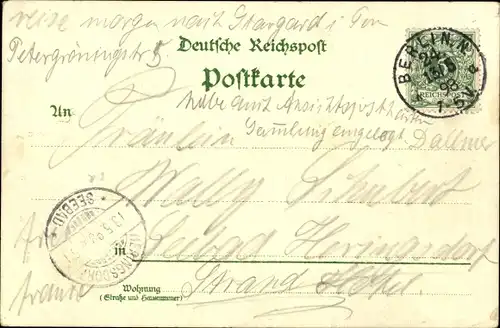 reise morgen nach Stargard i Pom
Petergröningstr 5
Deutsche Reichspost
Postkarte
BERLIN, N.
98
1-5N.
REICHSPOST
habe auch Ansichtspostkarten
An
Sammlung angelegt
Fräulein Dallmer
Wally Schubert
in Seebad Heringsdorf
Strand Hôtel
SEEBAD
HERINGSDORF
Wohnung
(Straße und Hausnummer)